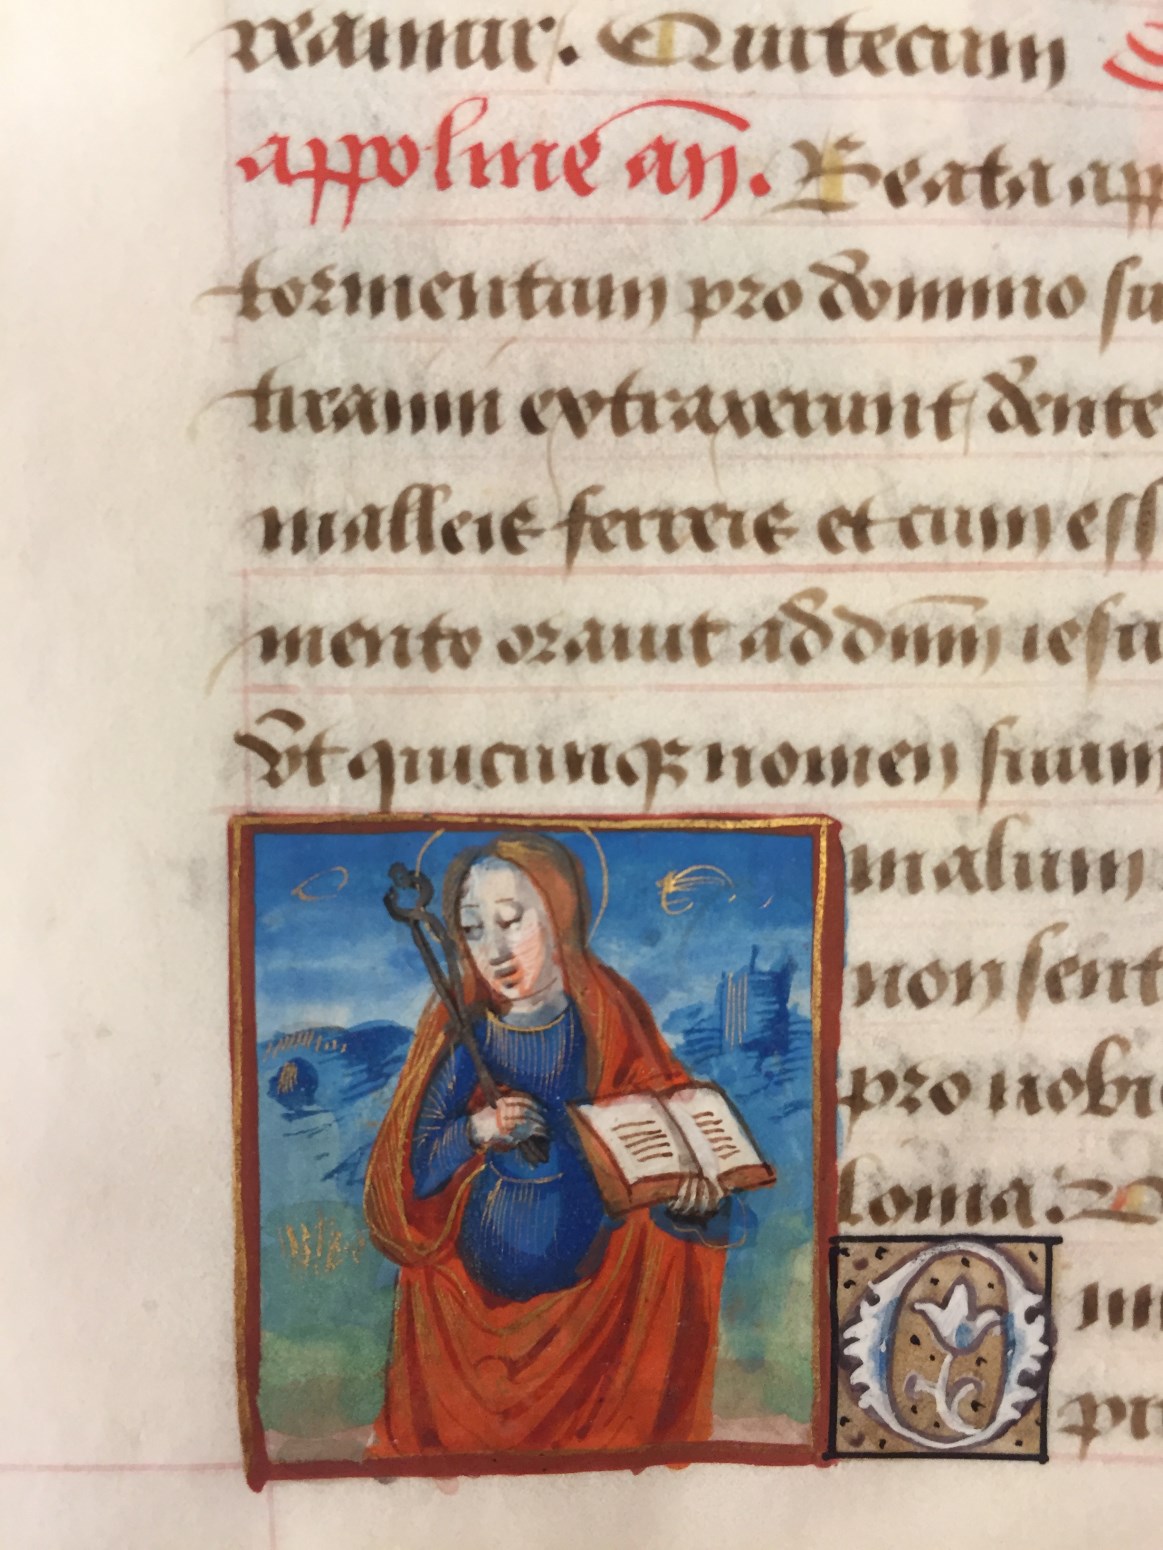 reamur. Qui tecum
appoline añ. Beata app
tormentum pro domino su
tiranni extraxerunt dente
malleis ferreis et cum ess
mento orauit ad dnm iesu
Vt quicunq nomen suum
malum
non sent
pro nobi
lonia.
O